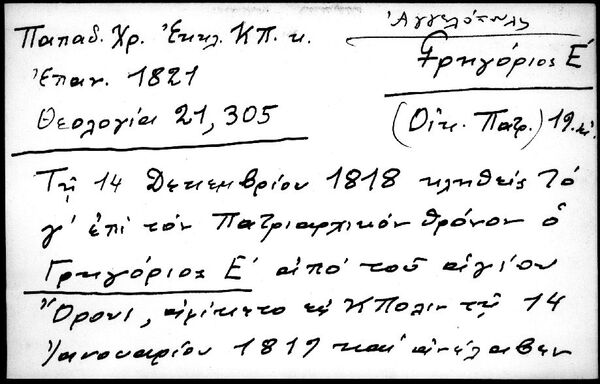 Παπαδ. Χρ. Ἐκκλ. ΚΠ. κ.
Ἐπαν. 1821
Θεολογία 21, 305
Ἀγγελόπουλος
Γρηγόριος Ε΄
(Οἰκ. Πατρ.) 19. αἰ.
Τῇ 14 Δεκεμβρίου 1818 κληθείς τό
γ΄ ἐπί τόν Πατριαρχικόν θρόνον ὁ
Γρηγόριος Ε΄ ἀπό τοῦ ἁγίου
Ὄρους, ἀφίκετο εἰς ΚΠολιν τῇ 14
Ἰανουαρίου 1819 καί ἀνέλαβεν